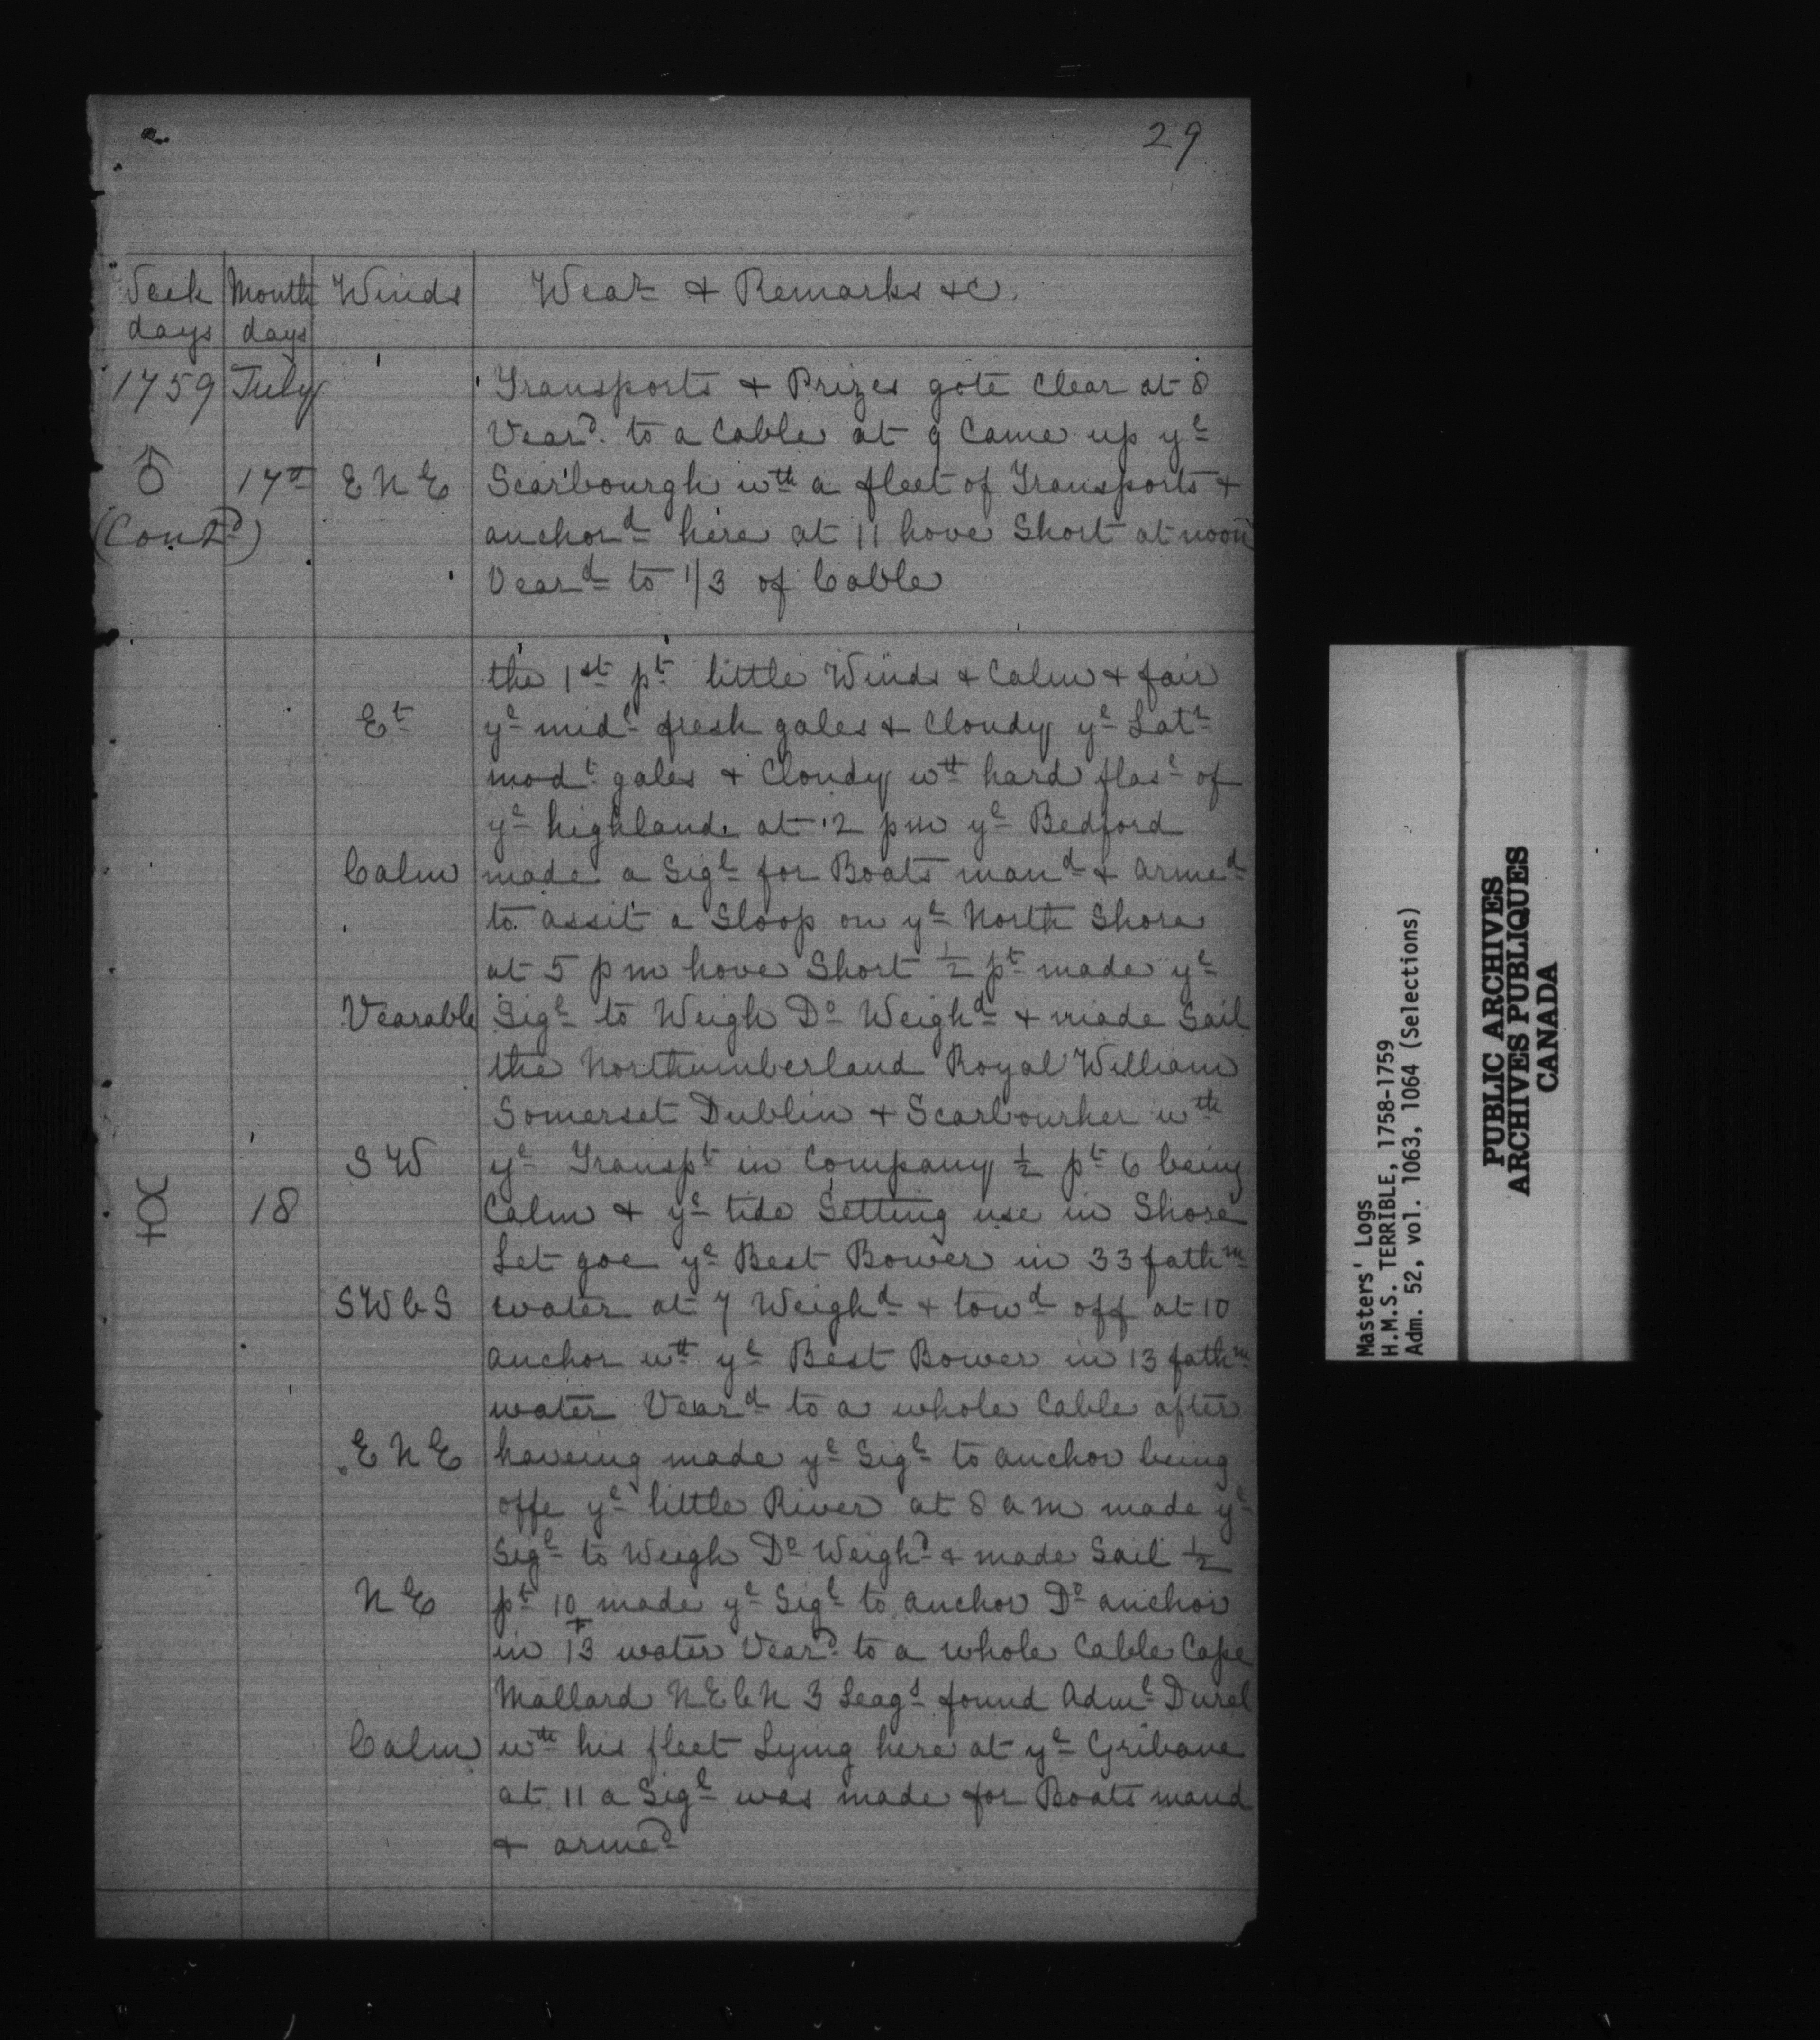 29
Week days | Month days | Winds | Wea^r & Remarks &c.
1759 July Transports & Prizes gote Clear at 8
Vear^d. to a Cable at 9 Came up y^e
♂ 17^th E N E Scarbourgh w^th a fleet of Transports &
(Cont^d) anchor^d here at 11 hove Short at noon
Vear^d to 1/3 of Cable
the 1^st p^t little Winds & Calm & fair
E^t y^e mid^l fresh gales & Cloudy y^e Lat^r
mod^t gales & Cloudy w^th hard flas^s of
y^e highland at 12 pm y^e Bedford
Calm made a Sig^l for Boats man^d & arme^d
to assit a Sloop on y^e North Shore
at 5 pm hove Short ½ p^t made y^e
Vearable Sig^l to Weigh D^o Weigh^d & made Sail
the Northumberland Royal William
Somerset Dublin & Scarbourher w^th
S W y^e Transp^t in Company ½ p^t 6 being
☿ 18 Calm & y^e tide Setting use in Shore
Let goe y^e Best Bower in 33 fath^m
SWbS water at 7 Weigh^d & tow^d off at 10
anchor w^th y^e Best Bower in 13 fath^m
water Vear^d to a whole Cable after
E N E haveing made y^e Sig^l to anchor being
offe y^e little River at 8 am made y^e
Sig^l to Weigh D^o Weigh^d & made Sail ½
N E p^t 10 made y^e Sig^l to anchor D^o anchor
in 13 ^F water Vear^d to a whole Cable Cape
Mallard NEbN 3 Leag^s found Adm^l Durel
Calm w^th his fleet Lying here at y^e Gribane
at 11 a Sig^l was made for Boats mand
& arme^d
Masters' Logs
H.M.S. TERRIBLE, 1758-1759
Adm. 52, vol. 1063, 1064 (Selections)
PUBLIC ARCHIVES
ARCHIVES PUBLIQUES
CANADA